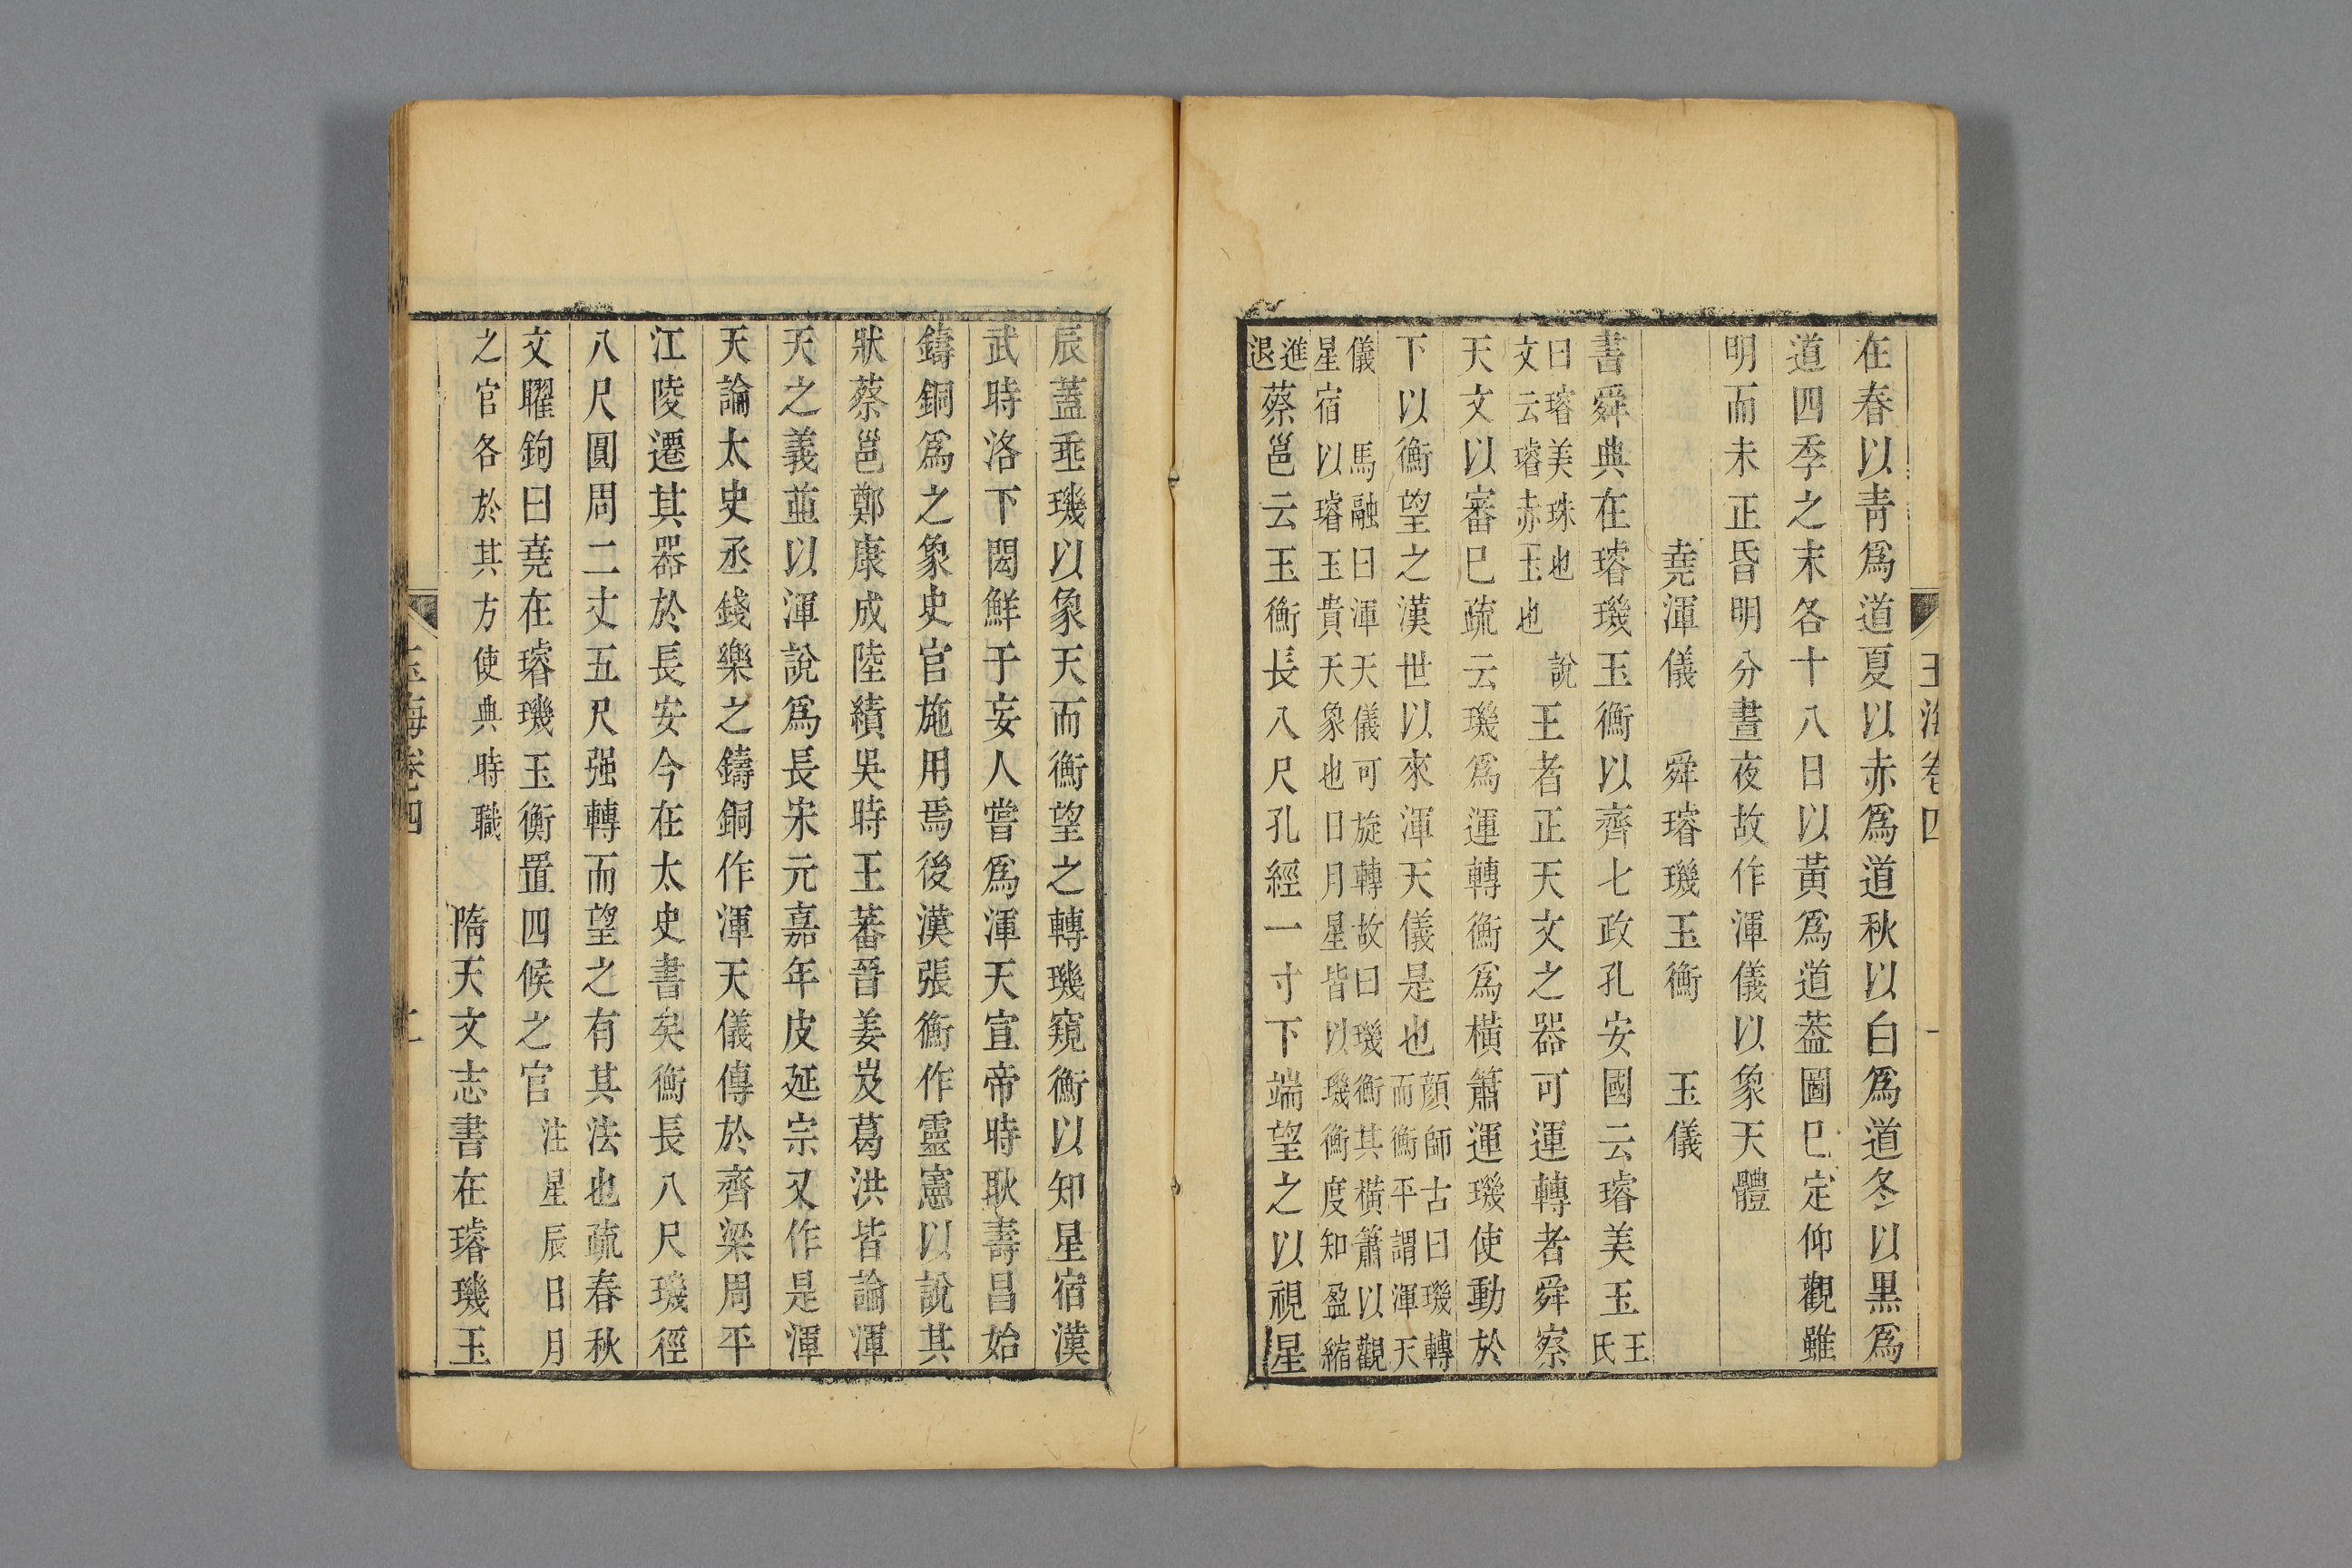 玉海卷四
在春以青爲道夏以赤爲道秋以白爲道冬以黒爲
道四季之末各十八日以黃爲道葢圖已定仰觀雖
明而未正昏明分晝夜故作渾儀以象天體
堯渾儀　舜璿璣玉衡　玉儀
書舜典在璿璣玉衡以齊七政孔安國云璿美玉王氏
曰璿美珠也說文云璿赤玉也王者正天文之器可運轉者舜察
天文以審已疏云璣爲運轉衡爲橫簫運璣使動於
下以衡望之漢世以來渾天儀是也顔師古曰璣轉而衡平謂渾天
儀　馬融曰渾天儀可旋轉故曰璣衡其橫簫以觀星宿以璿玉貴天象也日月星皆以璣衡度知盈縮
進退蔡邕云玉衡長八尺孔經一寸下端望之以視星
辰蓋埀璣以象天而衡望之轉璣窺衡以知星宿漢
武時洛下閎鮮于妄人嘗爲渾天宣帝時耿壽昌始
鑄銅爲之象史官施用焉後漢張衡作靈憲以說其
狀蔡邕鄭康成陸績吳時王蕃晉姜岌葛洪皆論渾
天之義並以渾說爲長宋元嘉年皮延宗又作是渾
天論太史丞錢樂之鑄銅作渾天儀傳於齊梁周平
江陵遷其器於長安今在太史書矣衡長八尺璣徑
八尺圓周二丈五尺强轉而望之有其法也疏春秋
文曜鉤曰堯在璿璣玉衡置四候之官注星辰日月
之官各於其方使典時職　隋天文志書在璿璣玉
玉海卷四